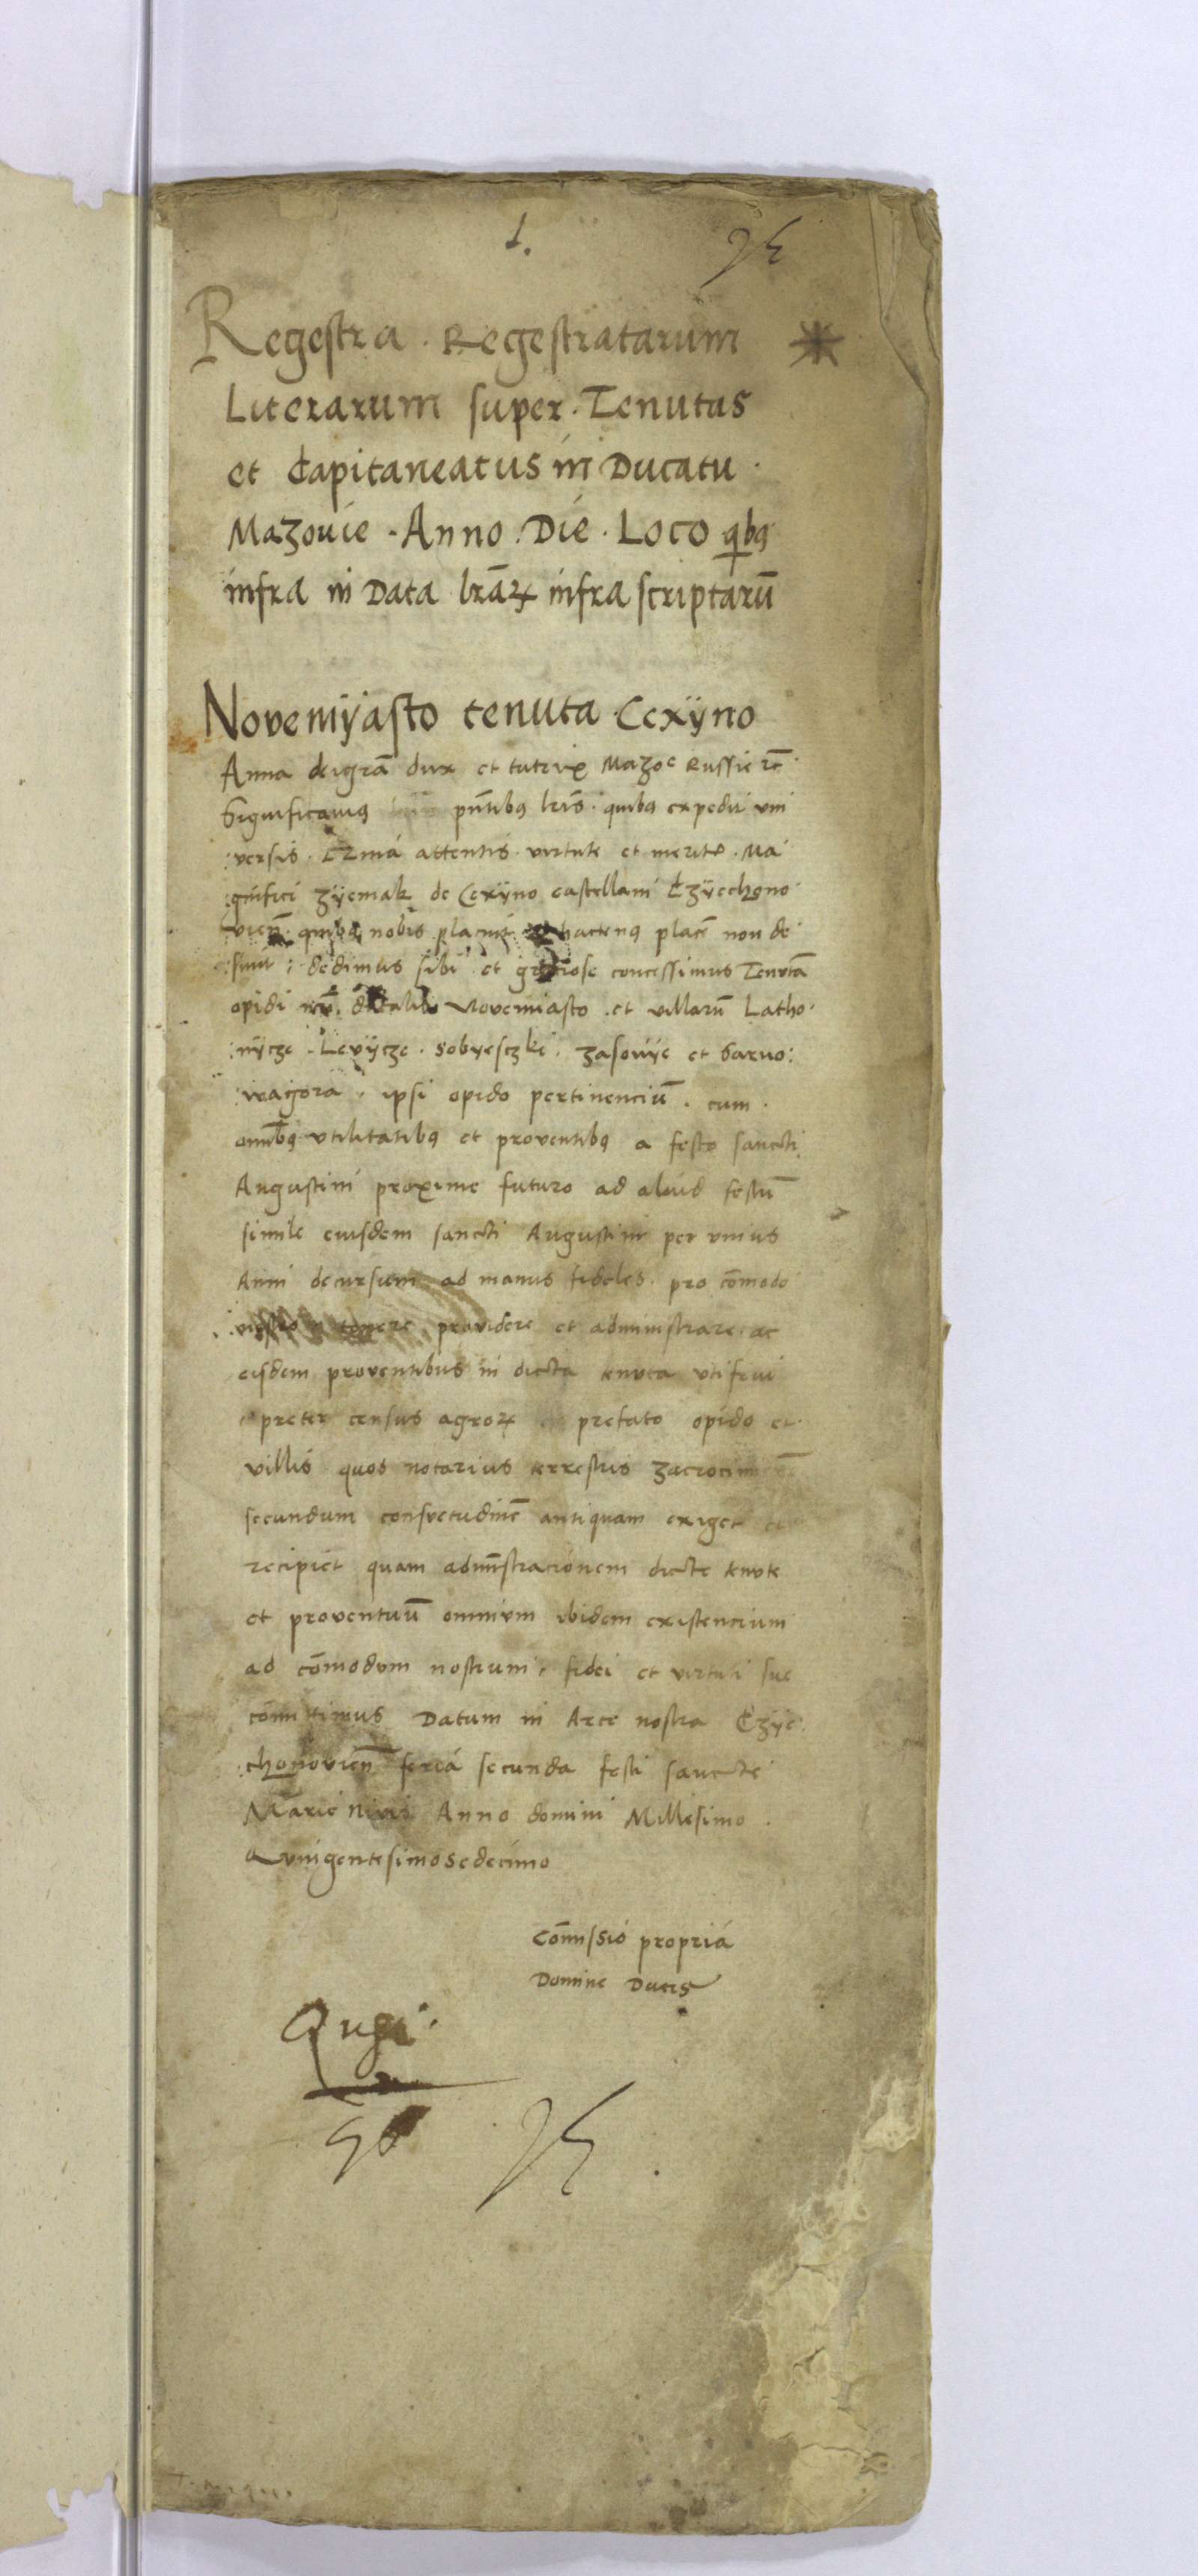 1.
Regestra . Regestratarum
Literarum super . Tenutas
et Capitaneatus in Ducatu .
Mazouie . Anno . Die . Loco qͥbꝫ
infra in Data lrãꝝ infra scriptarũ
Novemÿasto tenuta Cexÿno
Anna deigrã dux et tutrix Mazoᵉ Russie
Significamus pñtibꝫ lris . quibꝫ expedit vni
:versis . attentis . virtute et meritis . Ma
:gnifici Zÿemak de Cexÿno castellani Czÿechono
vieñ . quibꝫ nobis placuit hactenꝫ placẽ non de
:sunt : dedimus sibi et graciose concessimus Tenutã
opidi Novemiasto . et villarũ Latho
:nÿcze . Levÿcze . Sobyesczki . Zasovÿe et Sarno:
:vagora . ipsi opido pertinenciũ . cum .
omnibꝫ vtilitatibꝫ et proventibꝫ a festo sancti
Augustini proxime futuro ad aliud festũ
simile eiusdem sancti Augustini per vnius
Anni decursum ad manus fideles . pro cõmodo
nostro tenere providere et administrare . ac
eisdem proventibus in dicta tenuta vti frui
preter census agroꝝ prefato opido et
villis quos notarius terrestris
secundum consvetudinẽ antiquam exiget et
recipiet quam admĩstracionem dicte tenute
et proventuũ omnium ibidem existencium
ad cõmodum nostrum , fidei et virtuti sue
cõmittimus Datum in Arce nostra Czÿe
:chonovieñ feria secunda festi sancte
Marie Nivis Anno domini Millesimo .
Qvingentesimosedecimo
Cõmissio propria
Domine Ducis